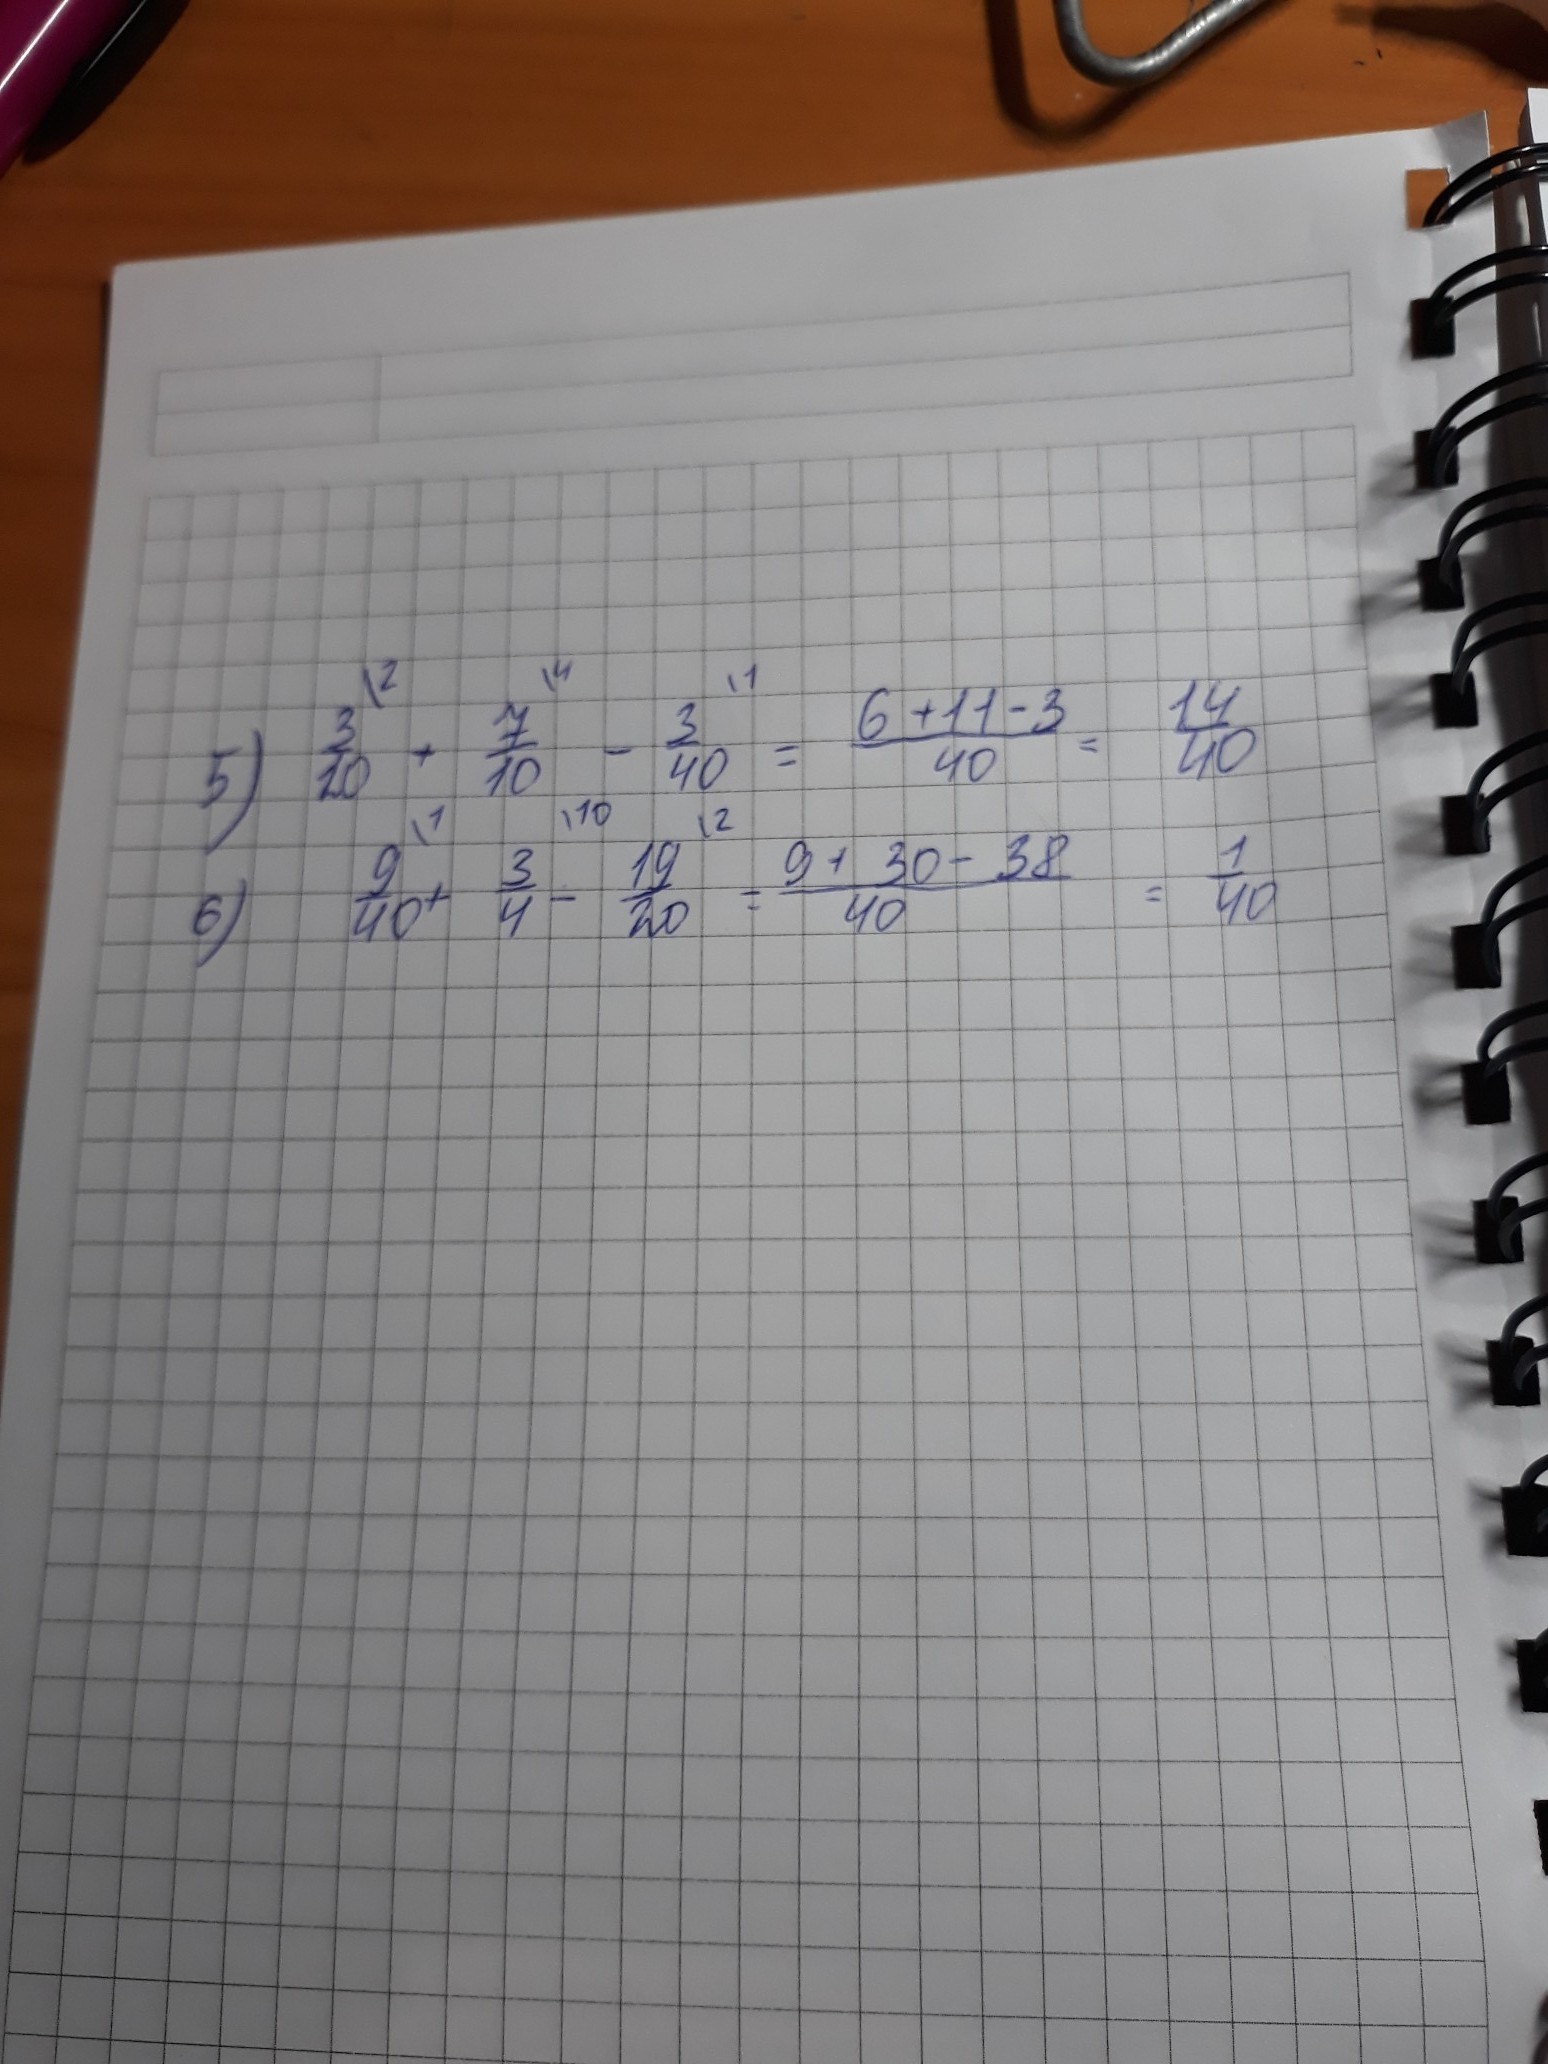 5) 3/20 \2 + 7/10 \4 - 3/40 \1 = 6+11-3/40 = 14/40
6) 9/40 \1 + 3/4 \10 - 19/20 \2 = 9+30-38/40 = 1/40